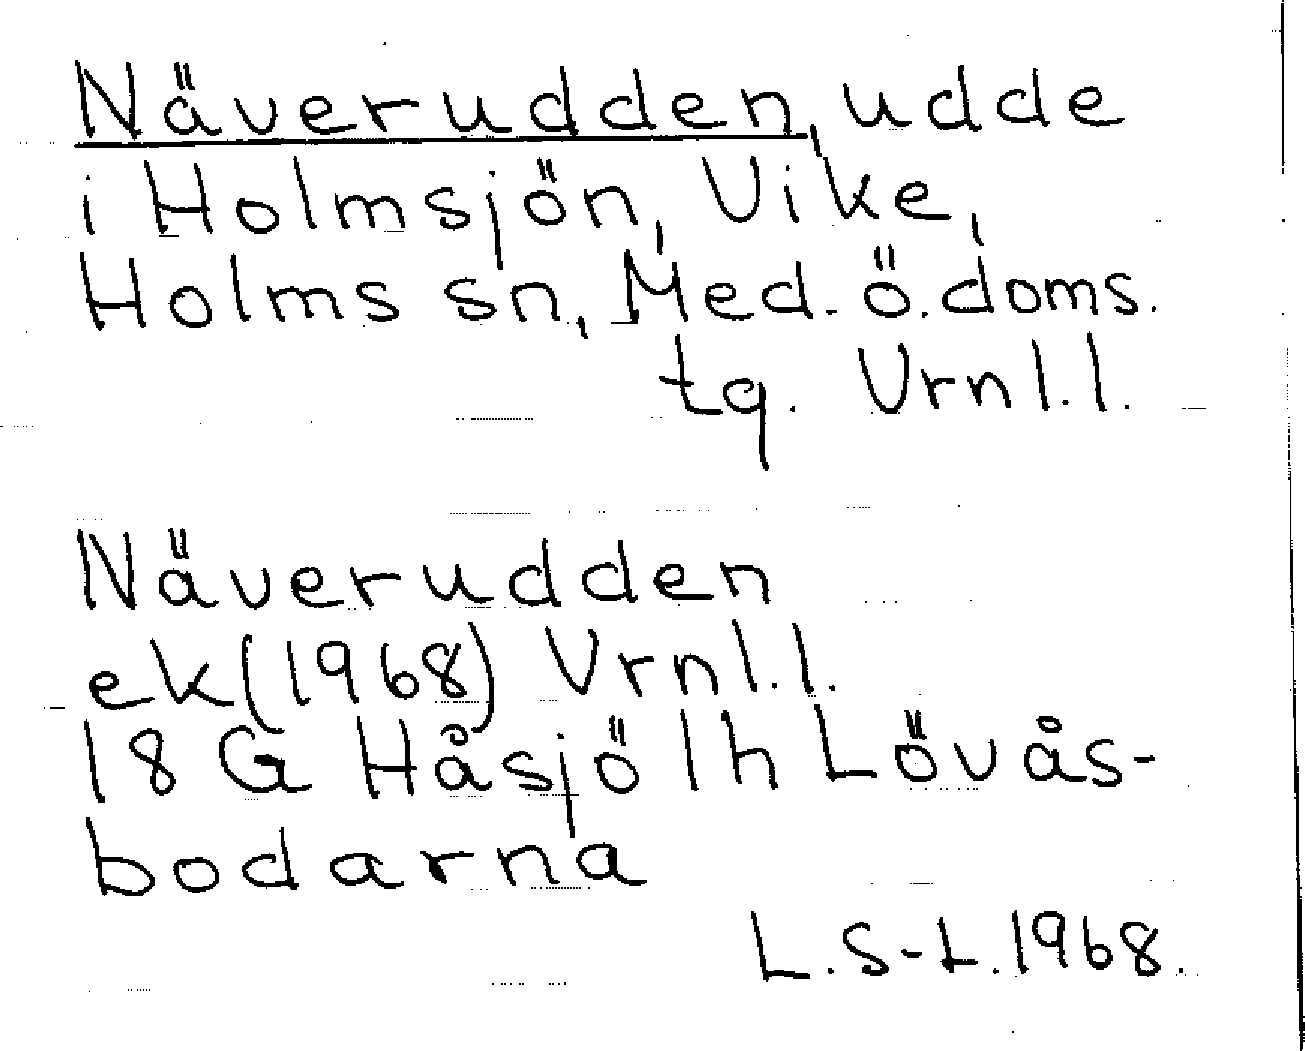 Näverudden, udde
i Holmsjön, Vike,
Holms sn, Med. ö. doms.
tg. Vrnl.l.
Näverudden
ek (1968) Vrnl.l.
18 G Håsjö 1h Lövås-
bodarna
L. S-L. 1968.